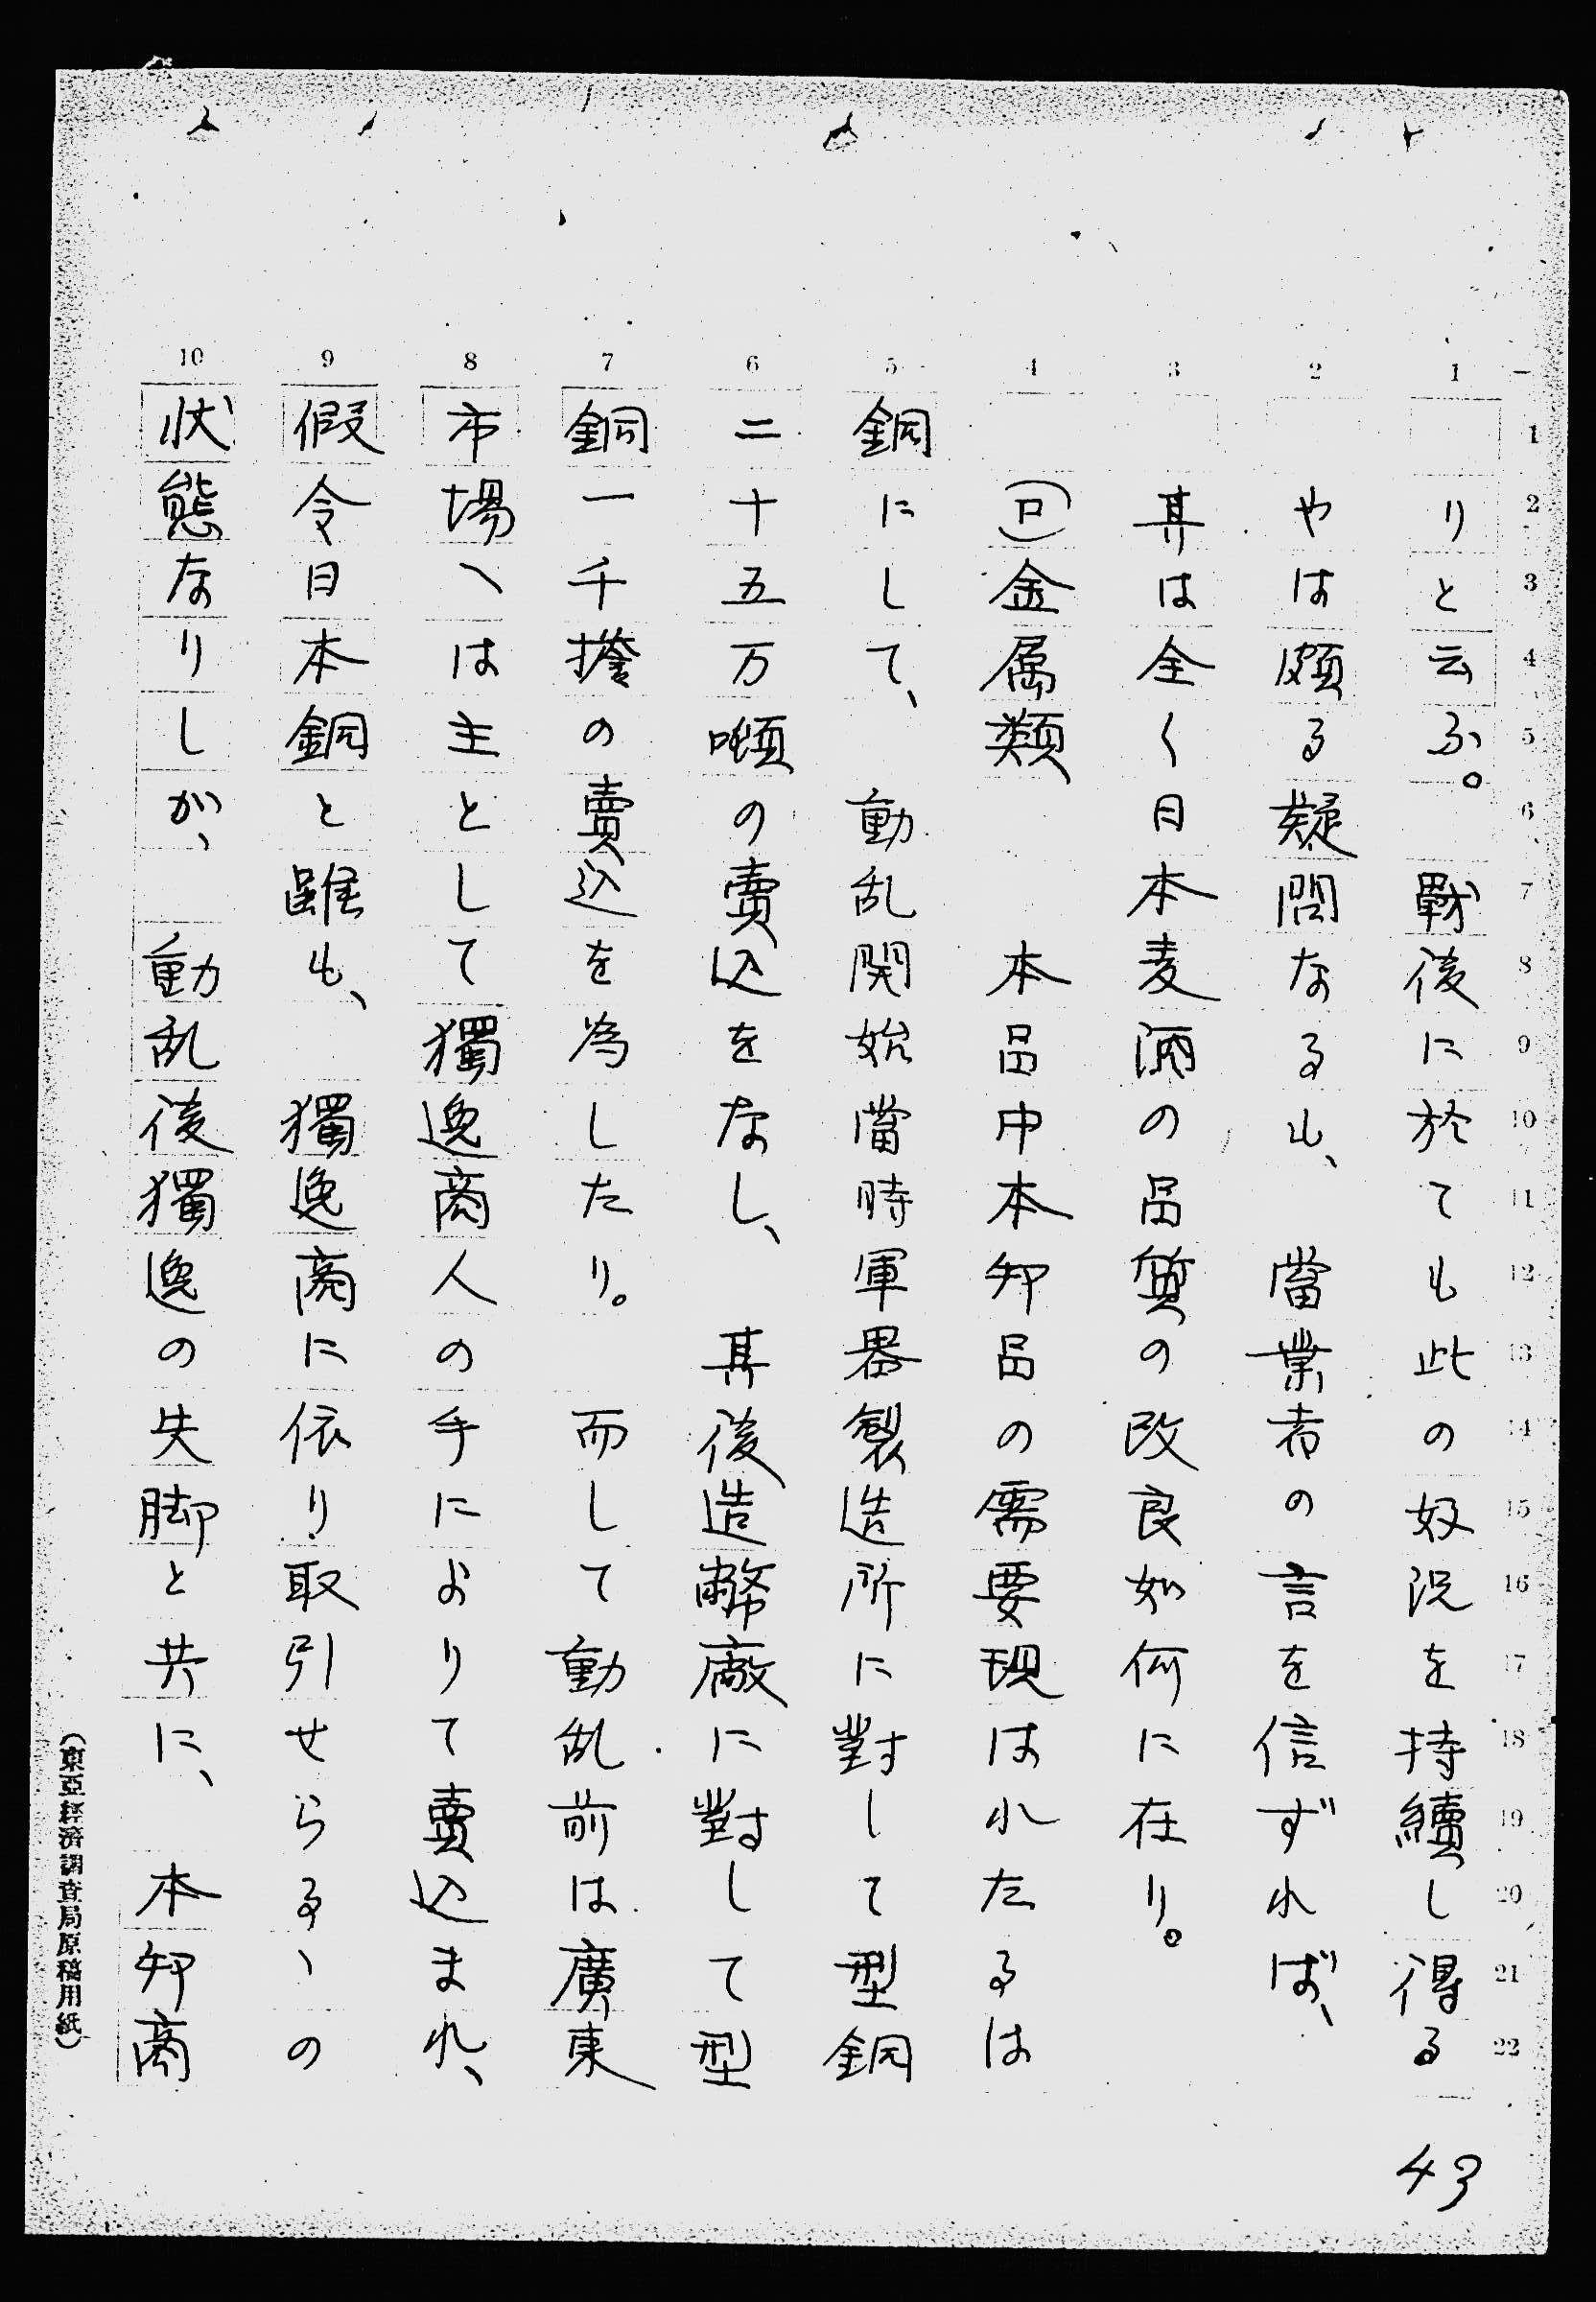 りと云ふ。 戰後に於ても此の好況を持續し得る
やは頗る疑問なるも、 當業者の言を信ずれば、
其は全く日本麦酒の品質の改良如何に在り。
(ロ)金属類 本品中本邦品の需要現はれたるは
銅にして、 動乱開始當時軍器製造所に對して型銅
二十五万噸の賣込をなし、 其後造幣廠に對して型
銅一千擔の賣込を為したり。 而して動乱前は廣東
市場へは主として獨逸商人の手によりて賣込まれ、
假令日本銅と雖も、 獨逸商に依り取引せらるゝの
状態なりしが、 動乱後獨逸の失脚と共に、 本邦商
(東亞經濟調査局原稿用紙)
一 1 2 3 4 5 6 7 8 9 10
1 2 3 4 5 6 7 8 9 10 11 12 13 14 15 16 17 18 19 20 21 22
43